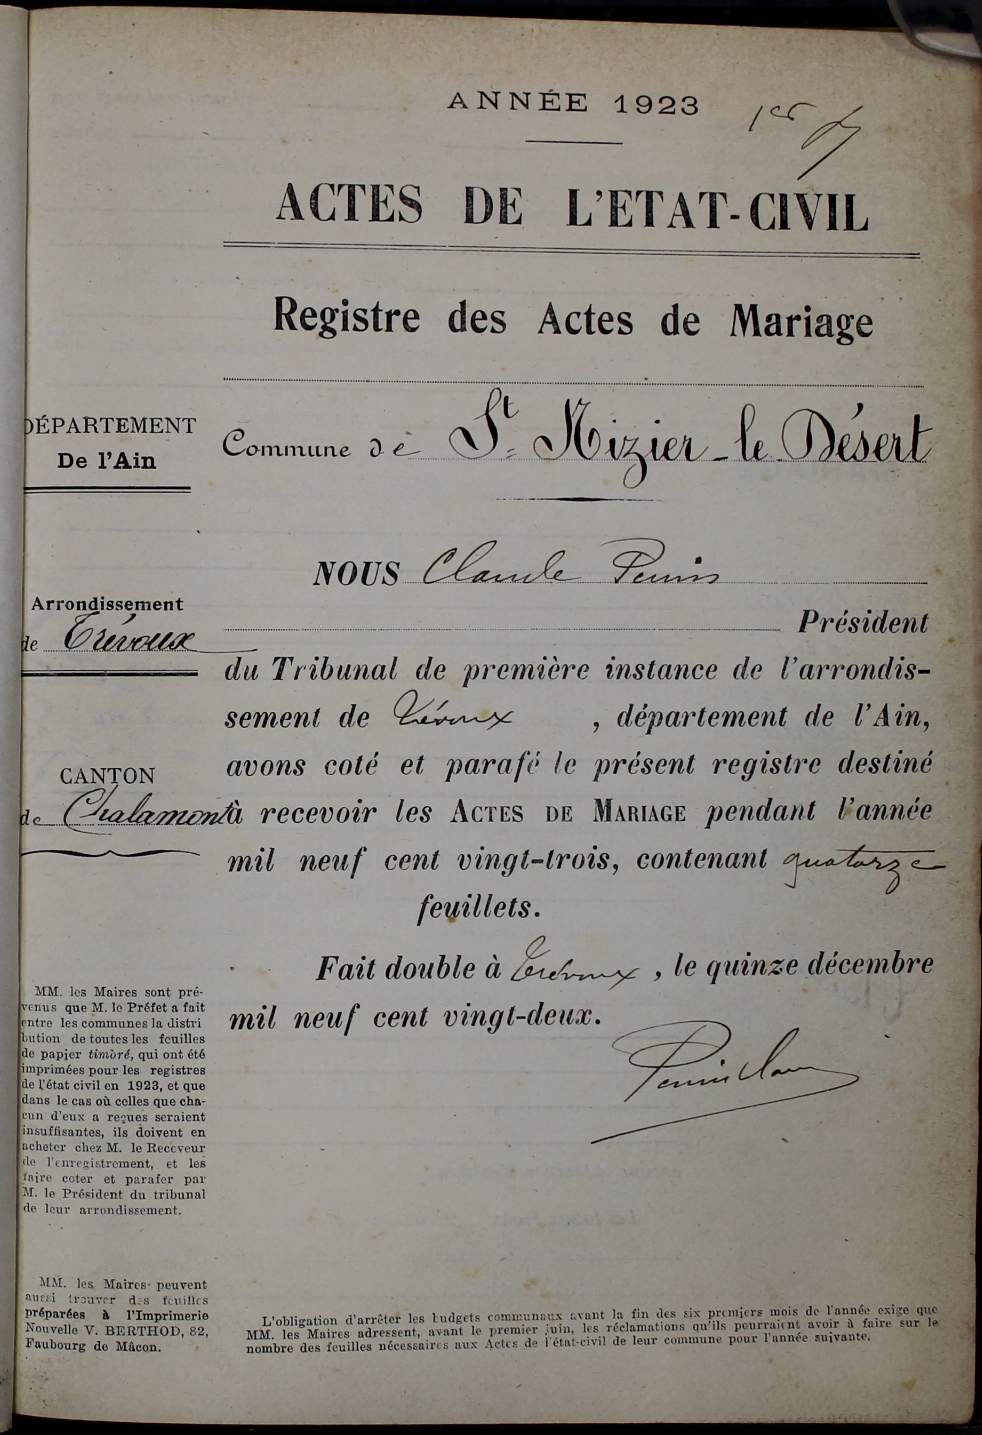 ANNÉE 1923
1er
ACTES DE L'ETAT-CIVIL
Registre des Actes de Mariage
DÉPARTEMENT
De l'Ain
Commune de St Nizier-le Désert
Arrondissement
de Trévoux
CANTON
de Chalamont
NOUS Claude
Président
du Tribunal de première instance de l'arrondis-
sement de Trévoux, département de l'Ain,
avons coté et parafé le présent registre destiné
à recevoir les ACTES DE MARIAGE pendant l'année
mil neuf cent vingt-trois, contenant quatorze
feuillets.
Fait double à Trévoux, le quinze décembre
mil neuf cent vingt-deux.
MM. les Maires sont pré-
venus que M. le Préfet a fait
entre les communes la distri
bution de toutes les feuilles
de papier timbré, qui ont été
imprimées pour les registres
de l'état civil en 1923, et que
dans le cas où celles que cha-
cun d'eux a reçues seraient
insuffisantes, ils doivent en
acheter chez M. le Receveur
de l'enregistrement, et les
faire coter et parafer par
M. le Président du tribunal
de leur arrondissement.
MM. les Maires peuvent
aussi trouver des feuilles
préparées à l'Imprimerie
Nouvelle V. BERTHOD, 82,
Faubourg de Mâcon.
L'obligation d'arrêter les budgets communaux avant la fin des six premiers mois de l'année exige que
MM. les Maires adressent, avant le premier juin, les réclamations qu'ils pourraient avoir à faire sur le
nombre des feuilles nécessaires aux Actes de l'état-civil de leur commune pour l'année suivante.